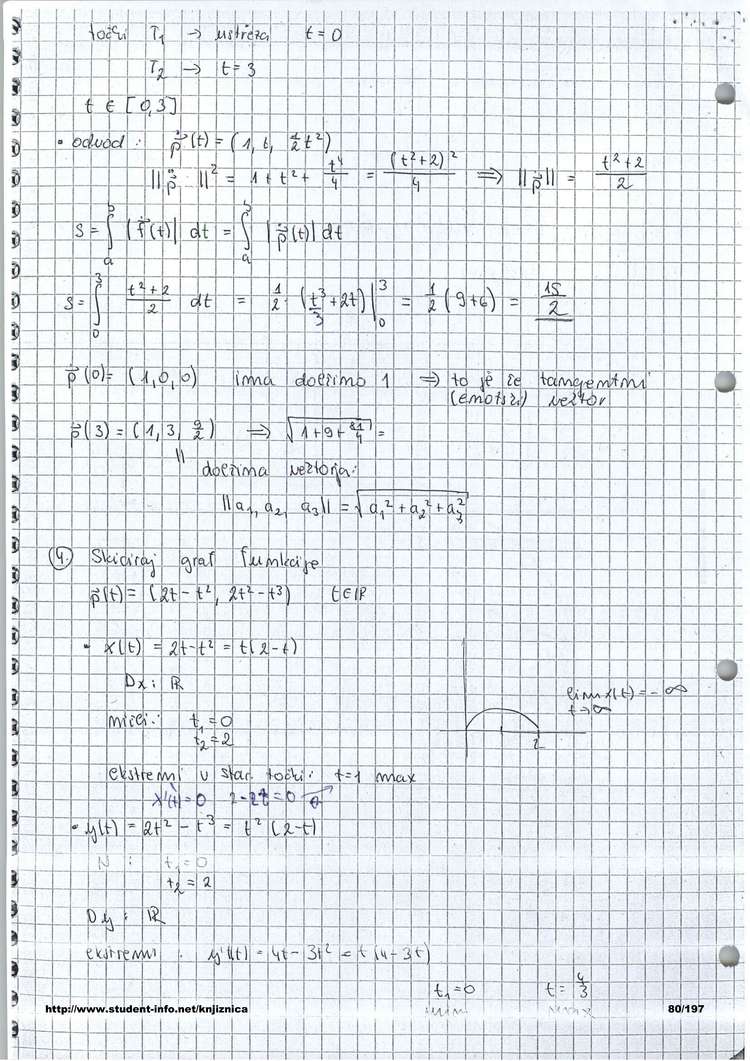 točki T₁ → ustreza t = 0
T₂ → t = 3
t ∈ [0,3]
• odvod: ṗ⃗(t) = (1, t, ½t²)
||ṗ⃗||² = 1 + t² + t⁴/4 = (t²+2)²/4 ⇒ ||ṗ⃗|| = (t²+2)/2
S = ∫ₐᵇ |ḟ⃗(t)| dt = ∫ₐᵇ |ṗ⃗(t)| dt
S = ∫₀³ (t²+2)/2 dt = ½ · (t³/3 + 2t) |₀³ = ½ (9+6) = 15/2
ṗ⃗(0) = (1,0,0) ima dolžino 1 ⇒ to je že tangentni
(enotski) vektor
ṗ⃗(3) = (1, 3, 9/2) ⇒ √(1+9+81/4) =
||
dolžina vektorja:
||a₁, a₂, a₃|| = √(a₁² + a₂² + a₃²)
4. Skiciraj graf funkcije
p⃗(t) = (2t − t², 2t² − t³) t ∈ ℝ
• x(t) = 2t − t² = t(2−t)
Dx: ℝ
lim x(t) = −∞
t→∞
ničli: t₁ = 0
t₂ = 2
2
ekstremi v stac. točki: t=1 max
x'(t) = 0 2−2t = 0
• y(t) = 2t² − t³ = t²(2−t)
N: t₁ = 0
t₂ = 2
Dy: ℝ
ekstremi: y'(t) = 4t − 3t² = t(4−3t)
t₁ = 0 t = 4/3
min max
http://www.student-info.net/knjiznica 80/197